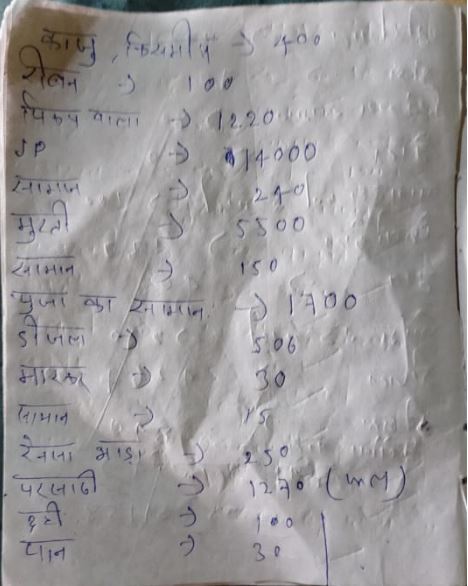 काजु, किसमीस → 400
रीबन → 100
पिकप वाला → 1220
JP → 14000
सामान → 240
मुरती → 5500
सामान → 150
पुजा का सामान → 1700
डीजल → 506
मारकर → 30
सामान → 15
ठेला भाड़ा → 250
परसादी → 1270 (फल)
दही → 100
पान → 30